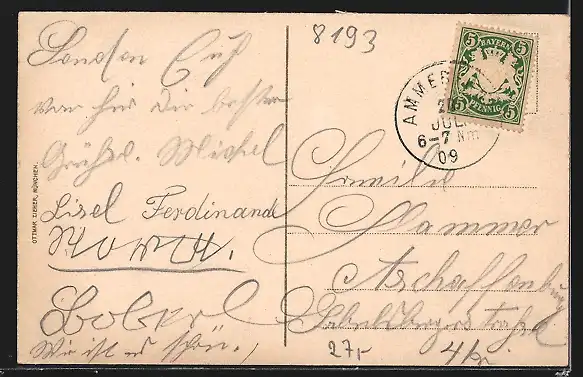 8193
Senden Euch
von hier die besten
Grüße. Michel
Lisel Ferdinand
Wie ist es schön.
OTTMAR ZIEHER, MÜNCHEN.
5 BAYERN 5
5 PFENNIG 5
AMMER
JUL
6-7 Nm
09
Familie
Hammer
Aschaffenburg
27,-